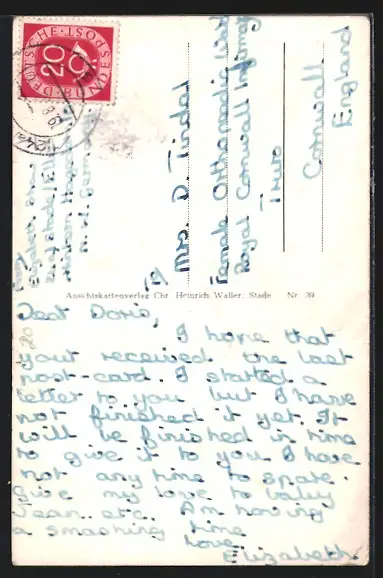 DEUTSCHE BUNDESPOST
20
To
Mrs. D. Tindal
Female Orthopaedic Ward
Royal Cornwall Infirmary
Truro
Cornwall
England
Ansichtskartenverlag Chr. Heinrich Waller, Stade Nr 39
Dear Doris,
I hope that
your received the last
post-card. I started a
letter to you but I have
not finished it yet. It
will be finished in time
to give it to you. I have
not any time to spare.
Give my love to
Jean etc. Am having
a smashing time
Love
Elizabeth